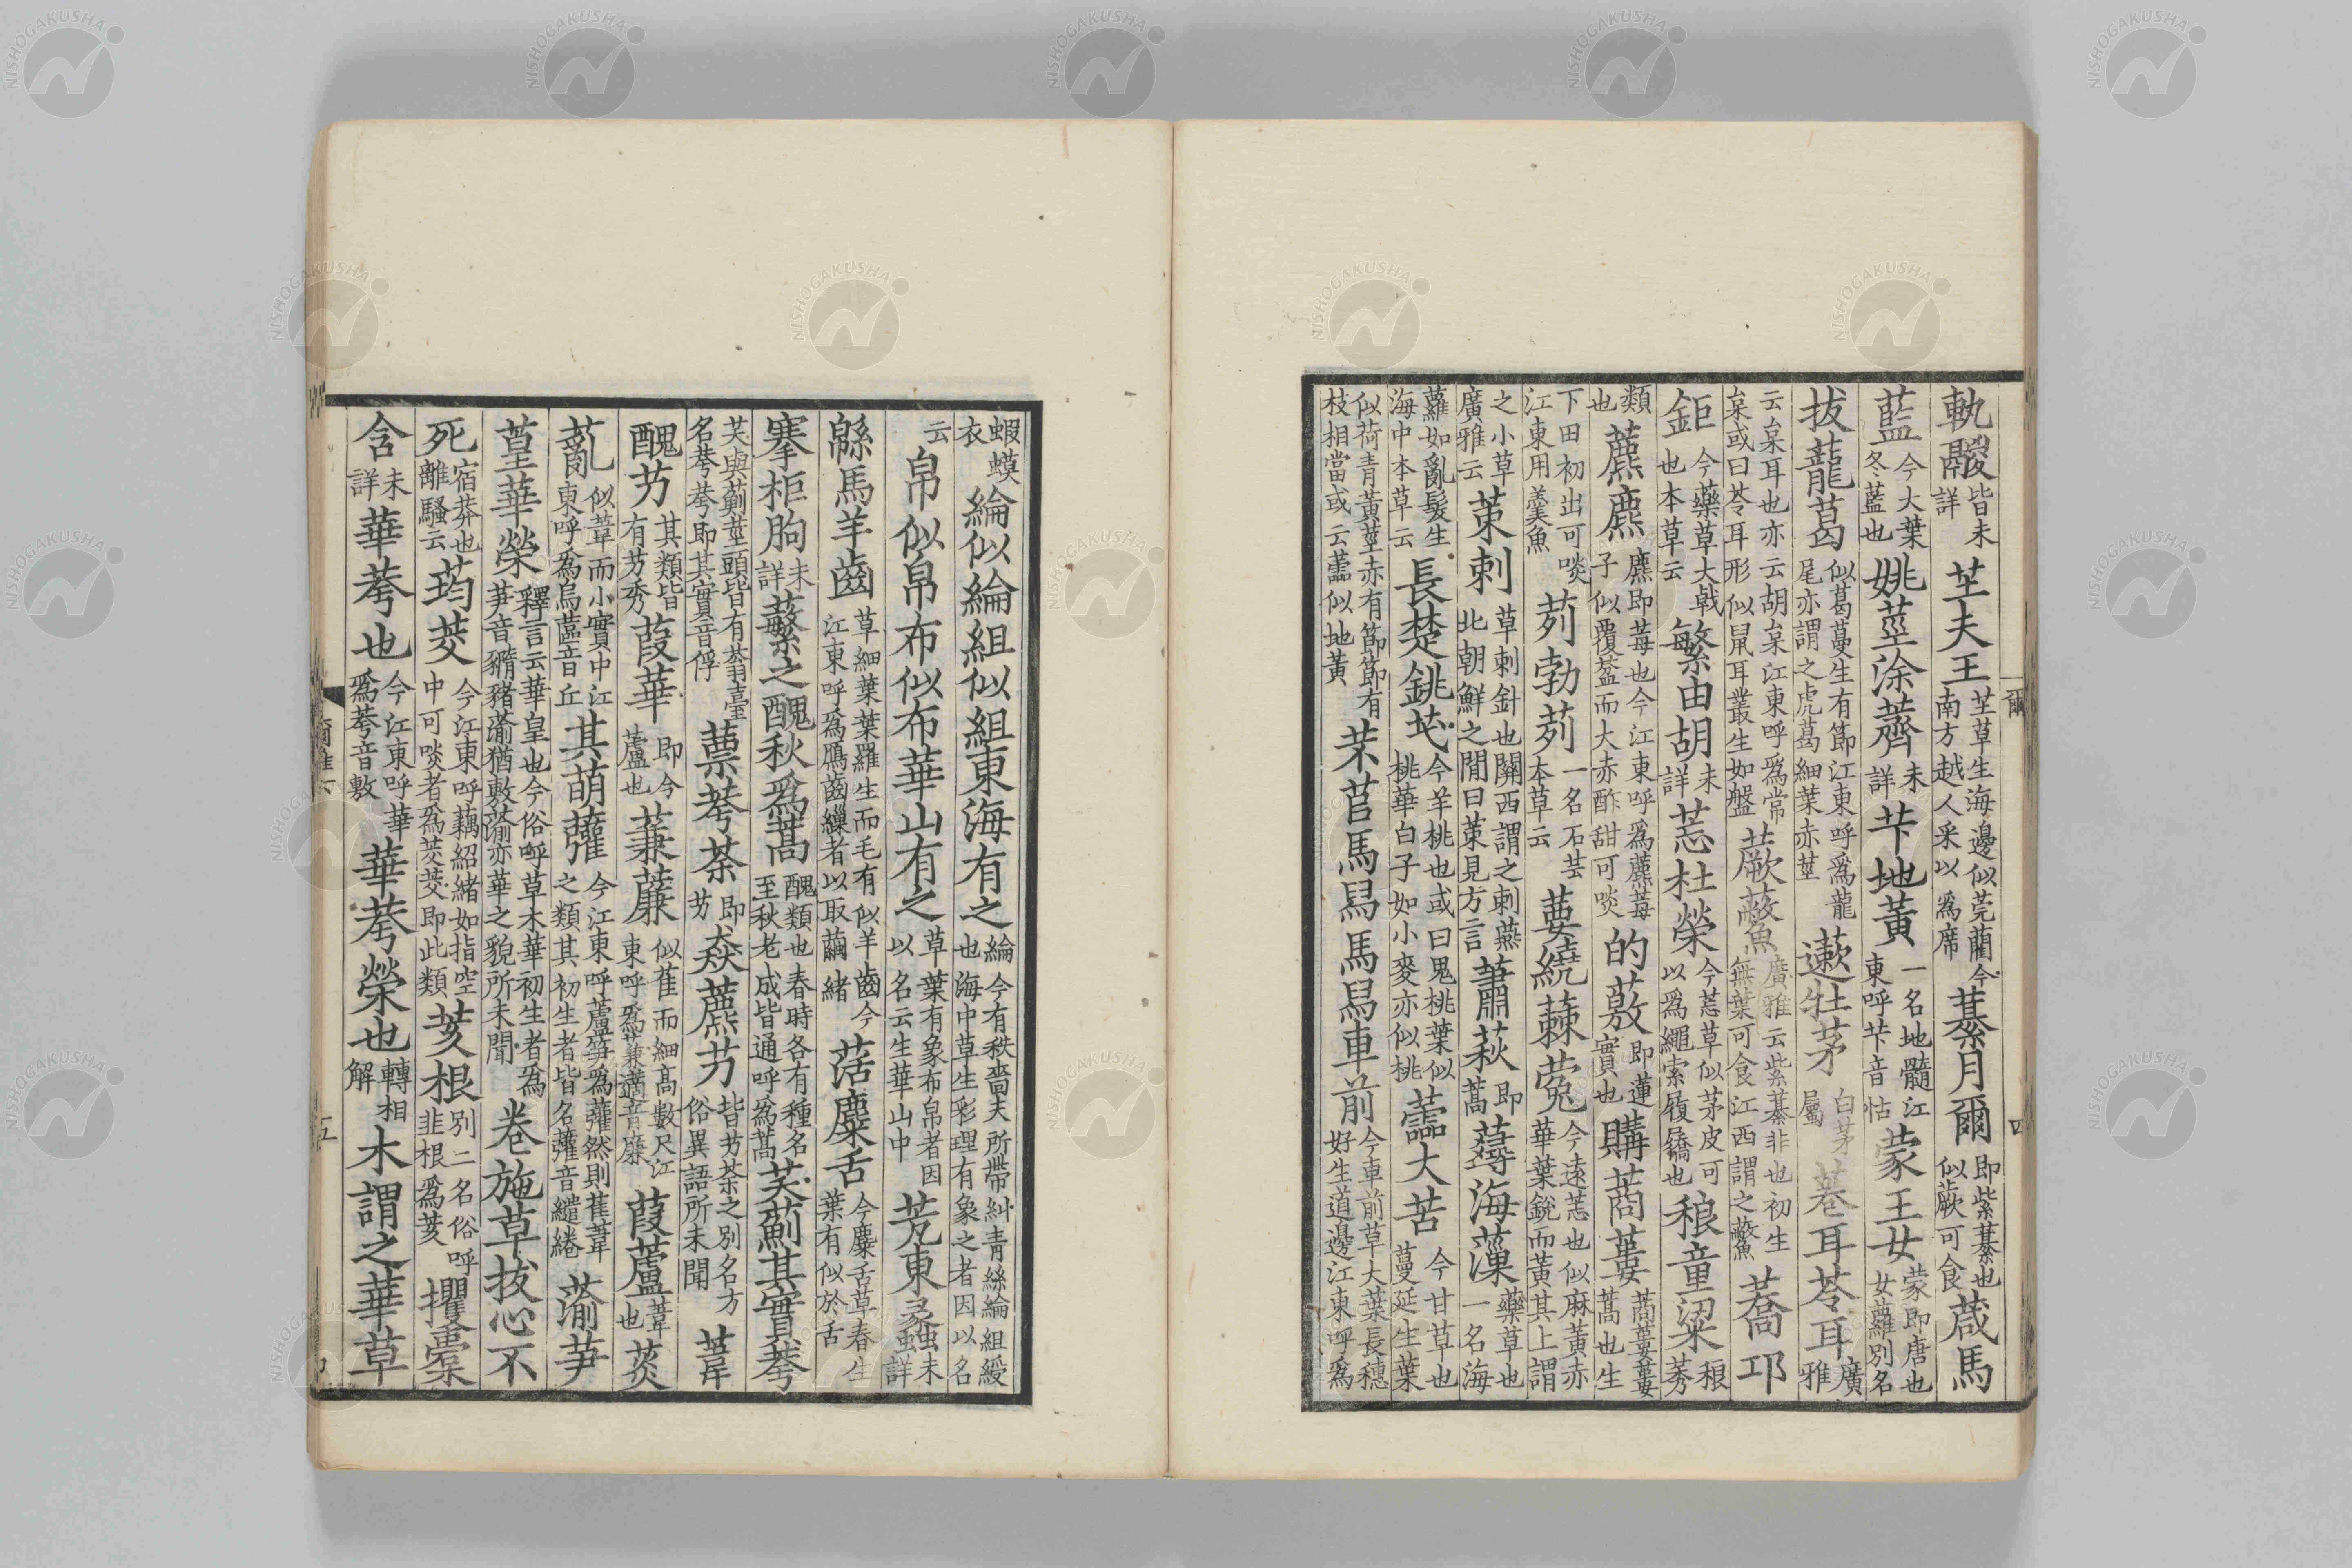 執騣皆未詳芏夫王芏草生海邊似莞藺今南方越人采以爲席綦月爾即紫綦也似蕨可食葴馬
藍今大葉冬藍也姚莖涂薺未詳芐地黃一名地髓江東呼芐音怙蒙王女蒙即唐也女蘿別名
拔蘢葛似葛蔓生有節江東呼爲龍尾亦謂之虎葛細葉赤莖蔌牡茅白茅屬菤耳苓耳廣雅
云枲耳也亦云胡枲江東呼爲常枲或曰苓耳形似鼠耳叢生如盤蕨虌廣雅云紫綦非也初生無葉可食江西謂之虌蕎邛
鉅今藥草大戟也本草云繁由胡未詳莣杜榮今莣草似茅皮可以爲繩索履屩也稂童粱稂莠
類也藨麃麃即莓也今江東呼爲藨莓子似覆葐而大赤酢甜可啖的薂即蓮實也購蔏蔞蔏蔞蔞蒿也生
下田初出可啖江東用羹魚茢勃茢一名石芸本草云葽繞蕀蒬今遠志也似麻黃赤華葉銳而黃其上謂
之小草廣雅云茦刺草刺針也關西謂之刺燕北朝鮮之閒曰茦見方言蕭萩即蒿薚海藻藥草也一名海
蘿如亂髮生海中本草云長楚銚芅今羊桃也或曰鬼桃葉似桃華白子如小麥亦似桃蘦大苦今甘草也蔓延生葉
似荷青黃莖赤有節節有枝相當或云蘦似地黃芣苢馬舄馬舄車前今車前草大葉長穗好生道邊江東呼爲
爾
四
蝦蟆衣綸似綸組似組東海有之綸今有秩嗇夫所帶糾青絲綸組綬也海中草生彩理有象之者因以名
云帛似帛布似布華山有之草葉有象布帛者因以名云生華山中芫東蠡未詳
緜馬羊齒草細葉葉羅生而毛有似羊齒今江東呼爲鴈齒繅者以取繭緒萿麋舌今麋舌草春生葉有似於舌
搴柜朐未詳蘩之醜秋爲蒿醜類也春時各有種名至秋老成皆通呼爲蒿芺薊其實荂
芺與薊莖頭皆有蓊臺名荂荂即其實音俘藨荂荼即芀猋藨芀皆芀荼之別名方俗異語所未聞葦
醜芀其類皆有芀秀葭華即今蘆也蒹薕似萑而細高數尺江東呼爲蒹藡音廉葭蘆葦也菼
薍似葦而小實中江東呼爲烏蓲音丘其萌虇今江東呼蘆筍爲虇然則萑葦之類其初生者皆名虇音繾綣蕍芛
葟華榮釋言云華皇也今俗呼草木華初生者爲芛音豨豬蕍猶敷蕍亦華之貌所未聞卷施草拔心不
死宿莽也離騷云荺茭今江東呼藕紹緒如指空中可啖者爲茭茭即此類荄根別二名俗呼韭根爲荄攫橐
含未詳華荂也今江東呼華爲荂音敷華荂榮也轉相解木謂之華草
爾雅下
五